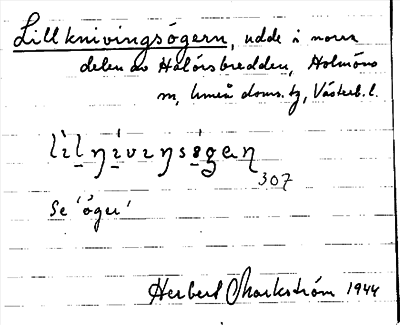 Lillknivingsögern, udde i norra
delen av Halörsbredden, Holmöns
sn, Umeå doms. tg, Västerb. l.
307
Se 'öger'
Herbert Markström 1944